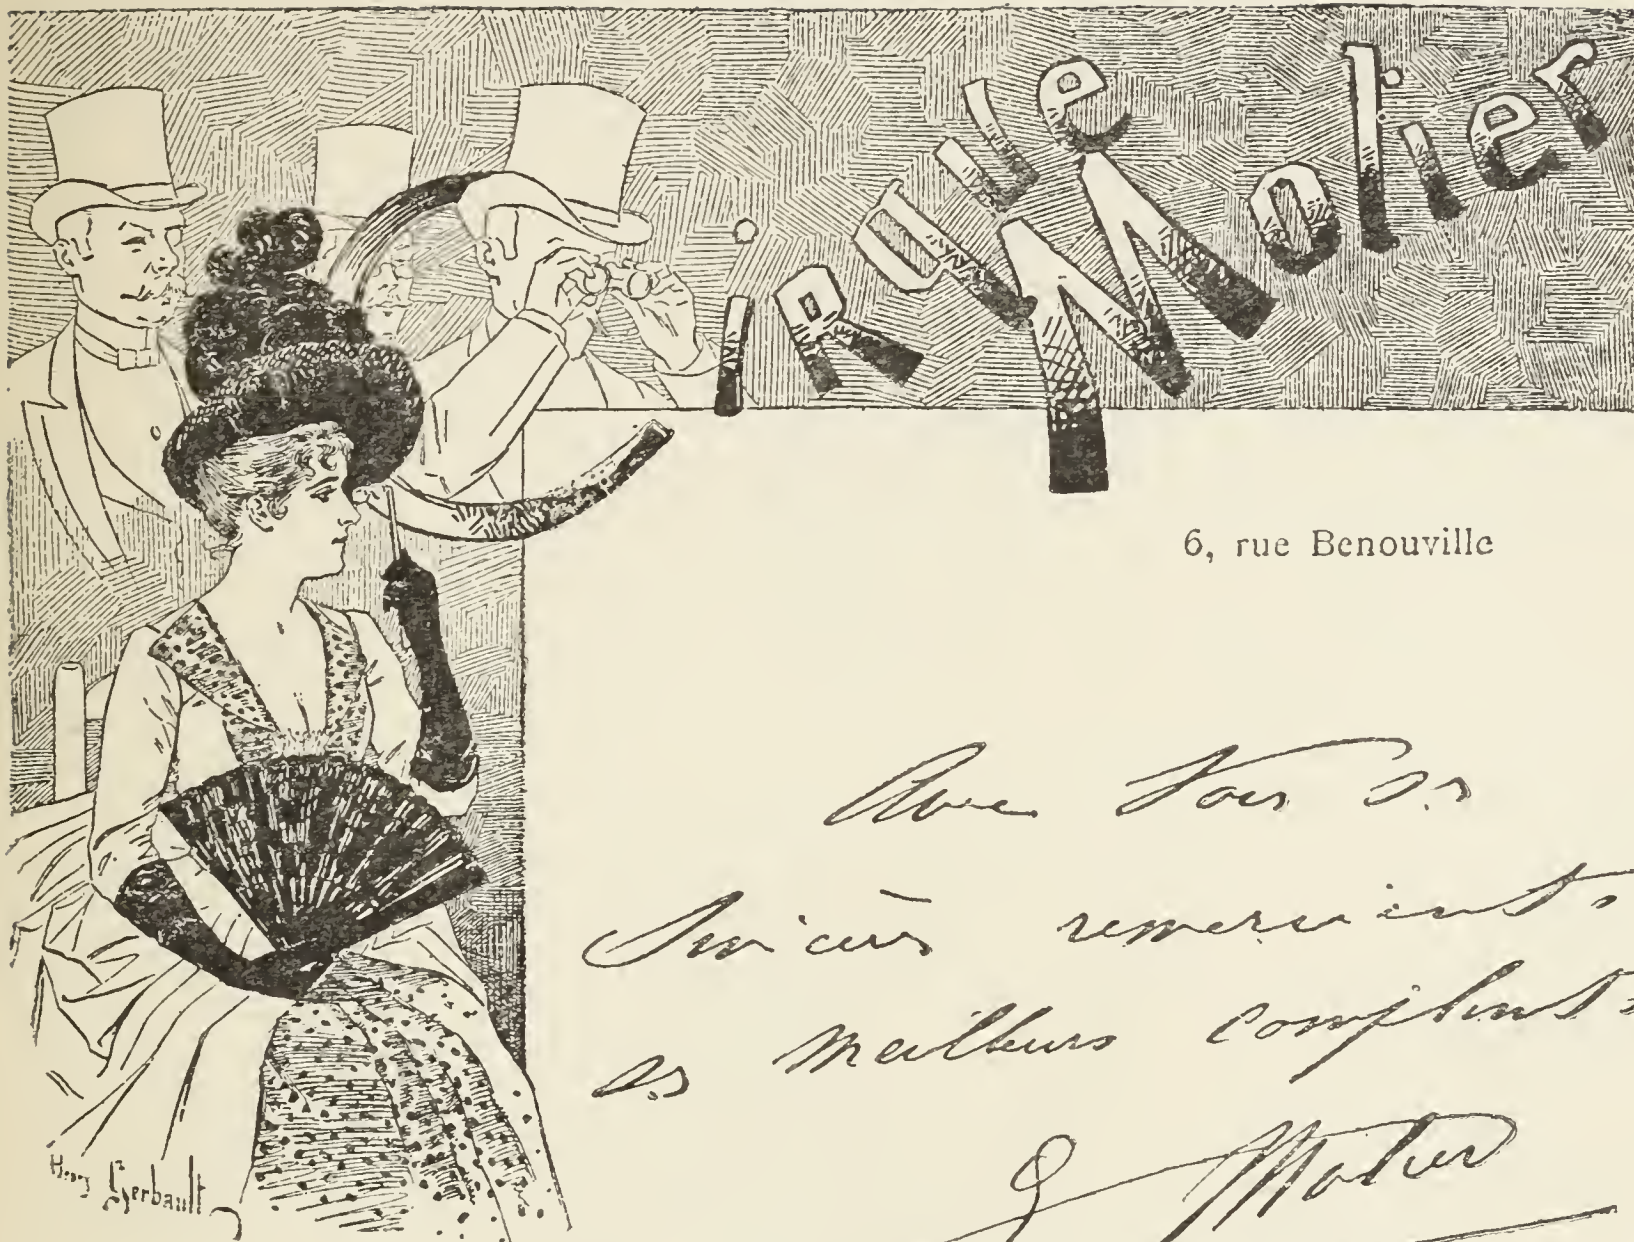 CiRQUe Molier
6, rue Benouville
Avec tous ses
sincères remerciemts
ses meilleurs complimts
E Molier
Henry Gerbault